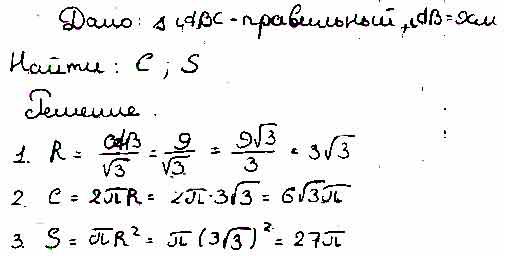 Дано: Δ ABC - правильный, AB = 9см
Найти: C; S
Решение.
1. R = AB/√3 = 9/√3 = 9√3/3 = 3√3
2. C = 2πR = 2π·3√3 = 6√3π
3. S = πR² = π(3√3)² = 27π